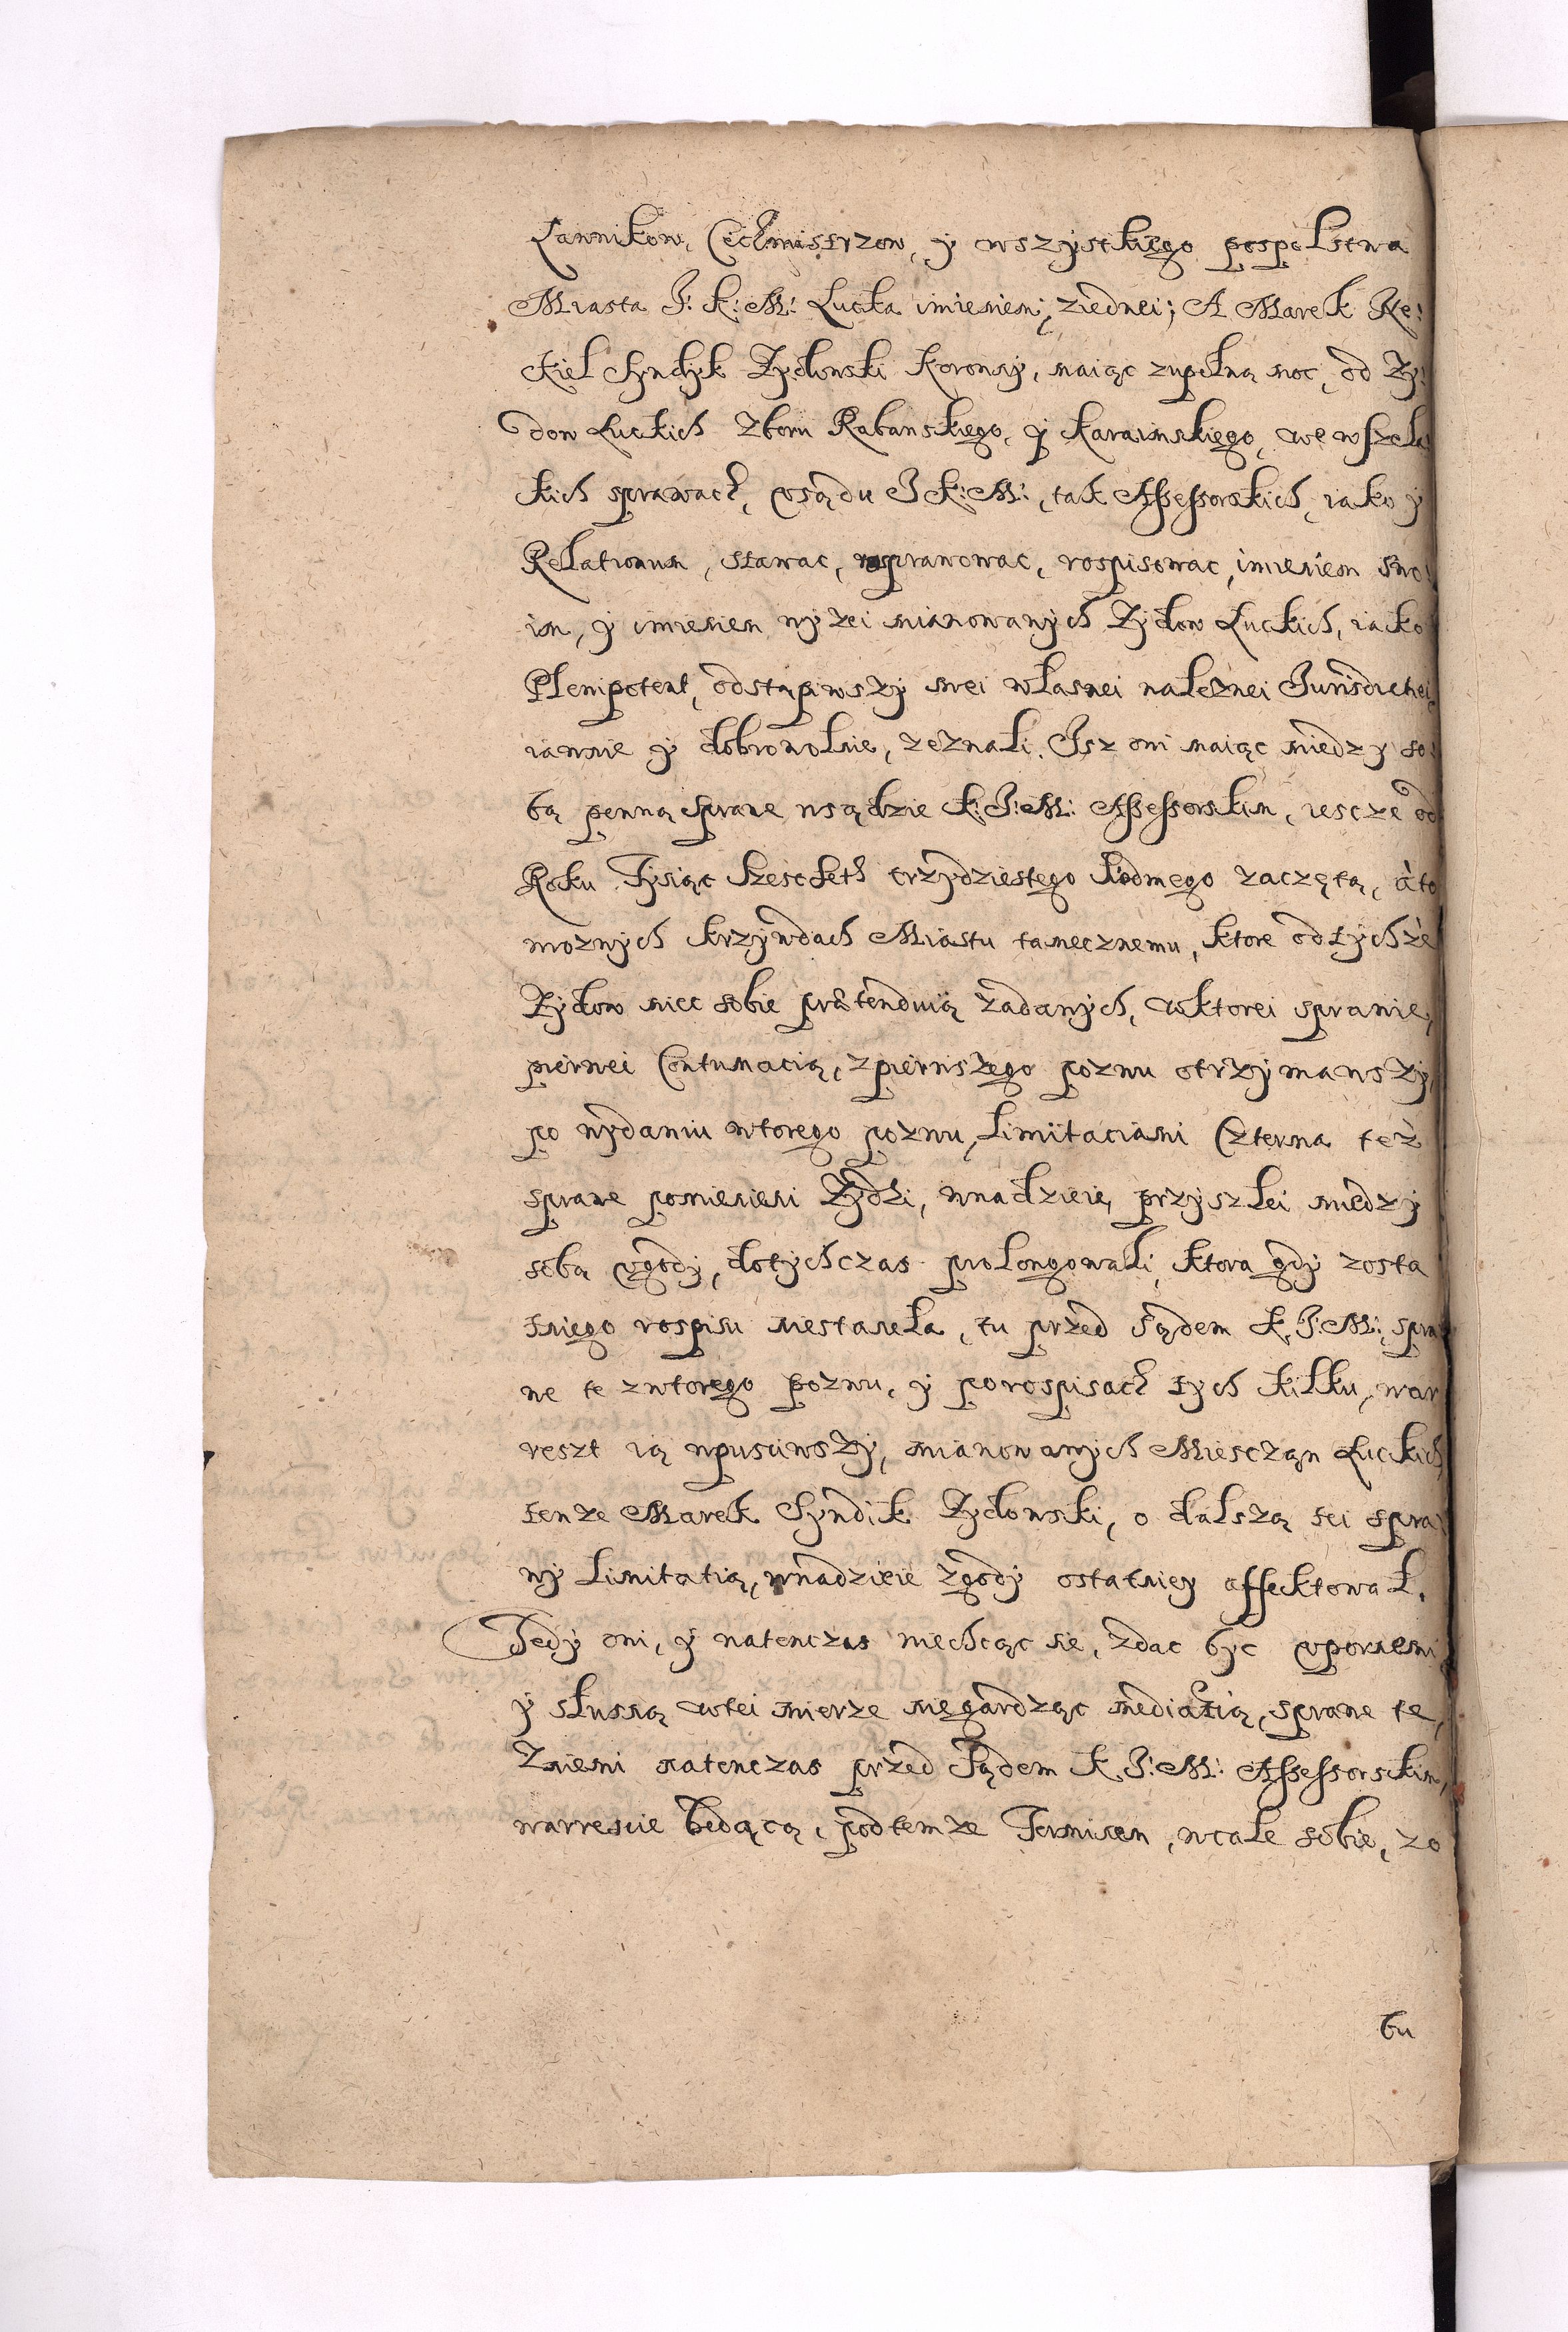 Ławnikow, Cechmistrzow, y wszystkiego pospolstwa
Miasta J: K: M: Łucka imieniem, ziednei; A Marek Ne:
kiel Syndyk Zydowski Koronny, maiąc zupełną moc, od Zy:
dow Łuckich Zboru Rabanskiego, y Karaimskiego, we wszela
kich sprawach, v sądu J K: M:, tak Assessorskich, iako y
Relationum, stawac, rosprawowac, rospisowac, imieniem swo:
im, y imieniem wyzei mianowanych Zydow Łuckich, iako
Plenipotent, odstąpiwszy swei własnei naleznei Jurisdictiei,
iawnie y dobrowolnie, zeznali. Isz oni maiąc miedzy so:
bą pewną sprawe wsądzie K: J: M: Assessorskim, iescze od
Roku Tysiąc Szescseth trzydziestego siodmego zaczętą, ato
moznych krzywdach Miastu tamecznemu, ktore od tychze
Zydow miec sobie prætenduią zadanych, wktorei sprawie,
pierwei Contumacią, zpierwszego pozwu otrzymawszy,
po wydaniu wtorego pozwu, limitaciami Czterma też
sprawe pomienieni Zydzi, wnadzieie, przyszłei miedzy
sobą vgody, dotychczas prolongowali, ktora gdy zosta
tniego rospisu niestaneła, tu przed sądem K. J: M:, spra
we te zwtorego pozwu, y po rospisach tych kilku, war
reszt ią wpusciwszy, mianowanych Miesczan Łuckich,
tenze Marek Syndik Zydowski, o dalszą tei spra
wy limitatią, wnadzieie zgody ostatniey affektował.
Tedy oni, y natenczas niechcąc sie, zdac byc vpornemi,
y słuszną wtei mierze niegardząc mediatią, sprawe te,
Zniemi natenczas przed Sądem K J: M: Assessorskim,
warrescie będącą, podtemze Terminem, wcale sobie, zo
bu